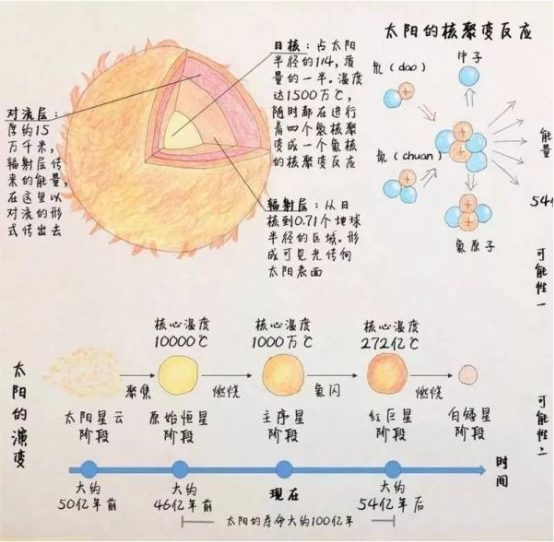 太阳的核聚变反应
日核：占太阳
半径的1/4，质
量的一半。温度
达1500万℃，
随时都在进行
着四个氢核聚
变成一个氦核
的核聚变反应
对流层：
厚约15
万千米，
辐射层传
来的能量，
在这里以
对流的形
式传出去
辐射层：从日
核到0.71个地球
半径的区域。形
成可见光传向
太阳表面
氘(dao)
氚(chuan)
中子
氦原子
能量
54亿
可能性一
可能性二
太阳的演变
核心温度
10000℃
核心温度
1000万℃
核心温度
272亿℃
聚集
燃烧
氦闪
燃烧
太阳星云
阶段
原始恒星
阶段
主序星
阶段
红巨星
阶段
白矮星
阶段
时间
大约
50亿年前
大约
46亿年前
现在
大约
54亿年后
太阳的寿命大约100亿年